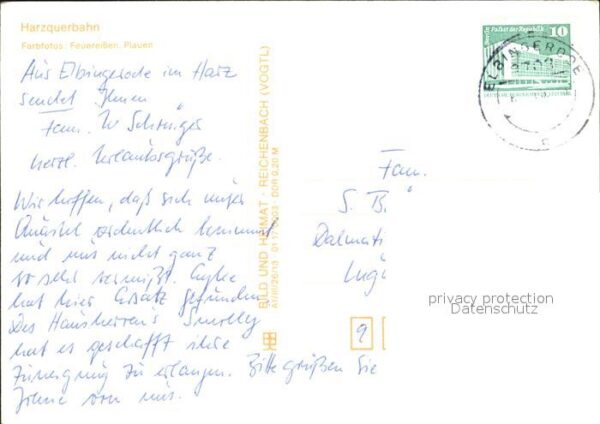 Harzquerbahn
Farbfotos: Feuereißen, Plauen
Aus Elbingerode im Harz
sendet Ihnen
Fam. W
herzl. Urlaubsgrüße.
Wir hoffen, daß sich unser
ordentlich benimmt
und uns nicht ganz
so sehr vermißt.
hat hier Ersatz gefunden.
Des Hausherren's
hat es geschafft ihre
Zuneigung zu erlangen. Bitte grüßen Sie
von uns.
BILD UND HEIMAT · REICHENBACH (VOGTL)
DDR 0,20 M
Palast der Republik
10
ELBINGERODE
Fam.
S. B
Dalmati
privacy protection
Datenschutz
9